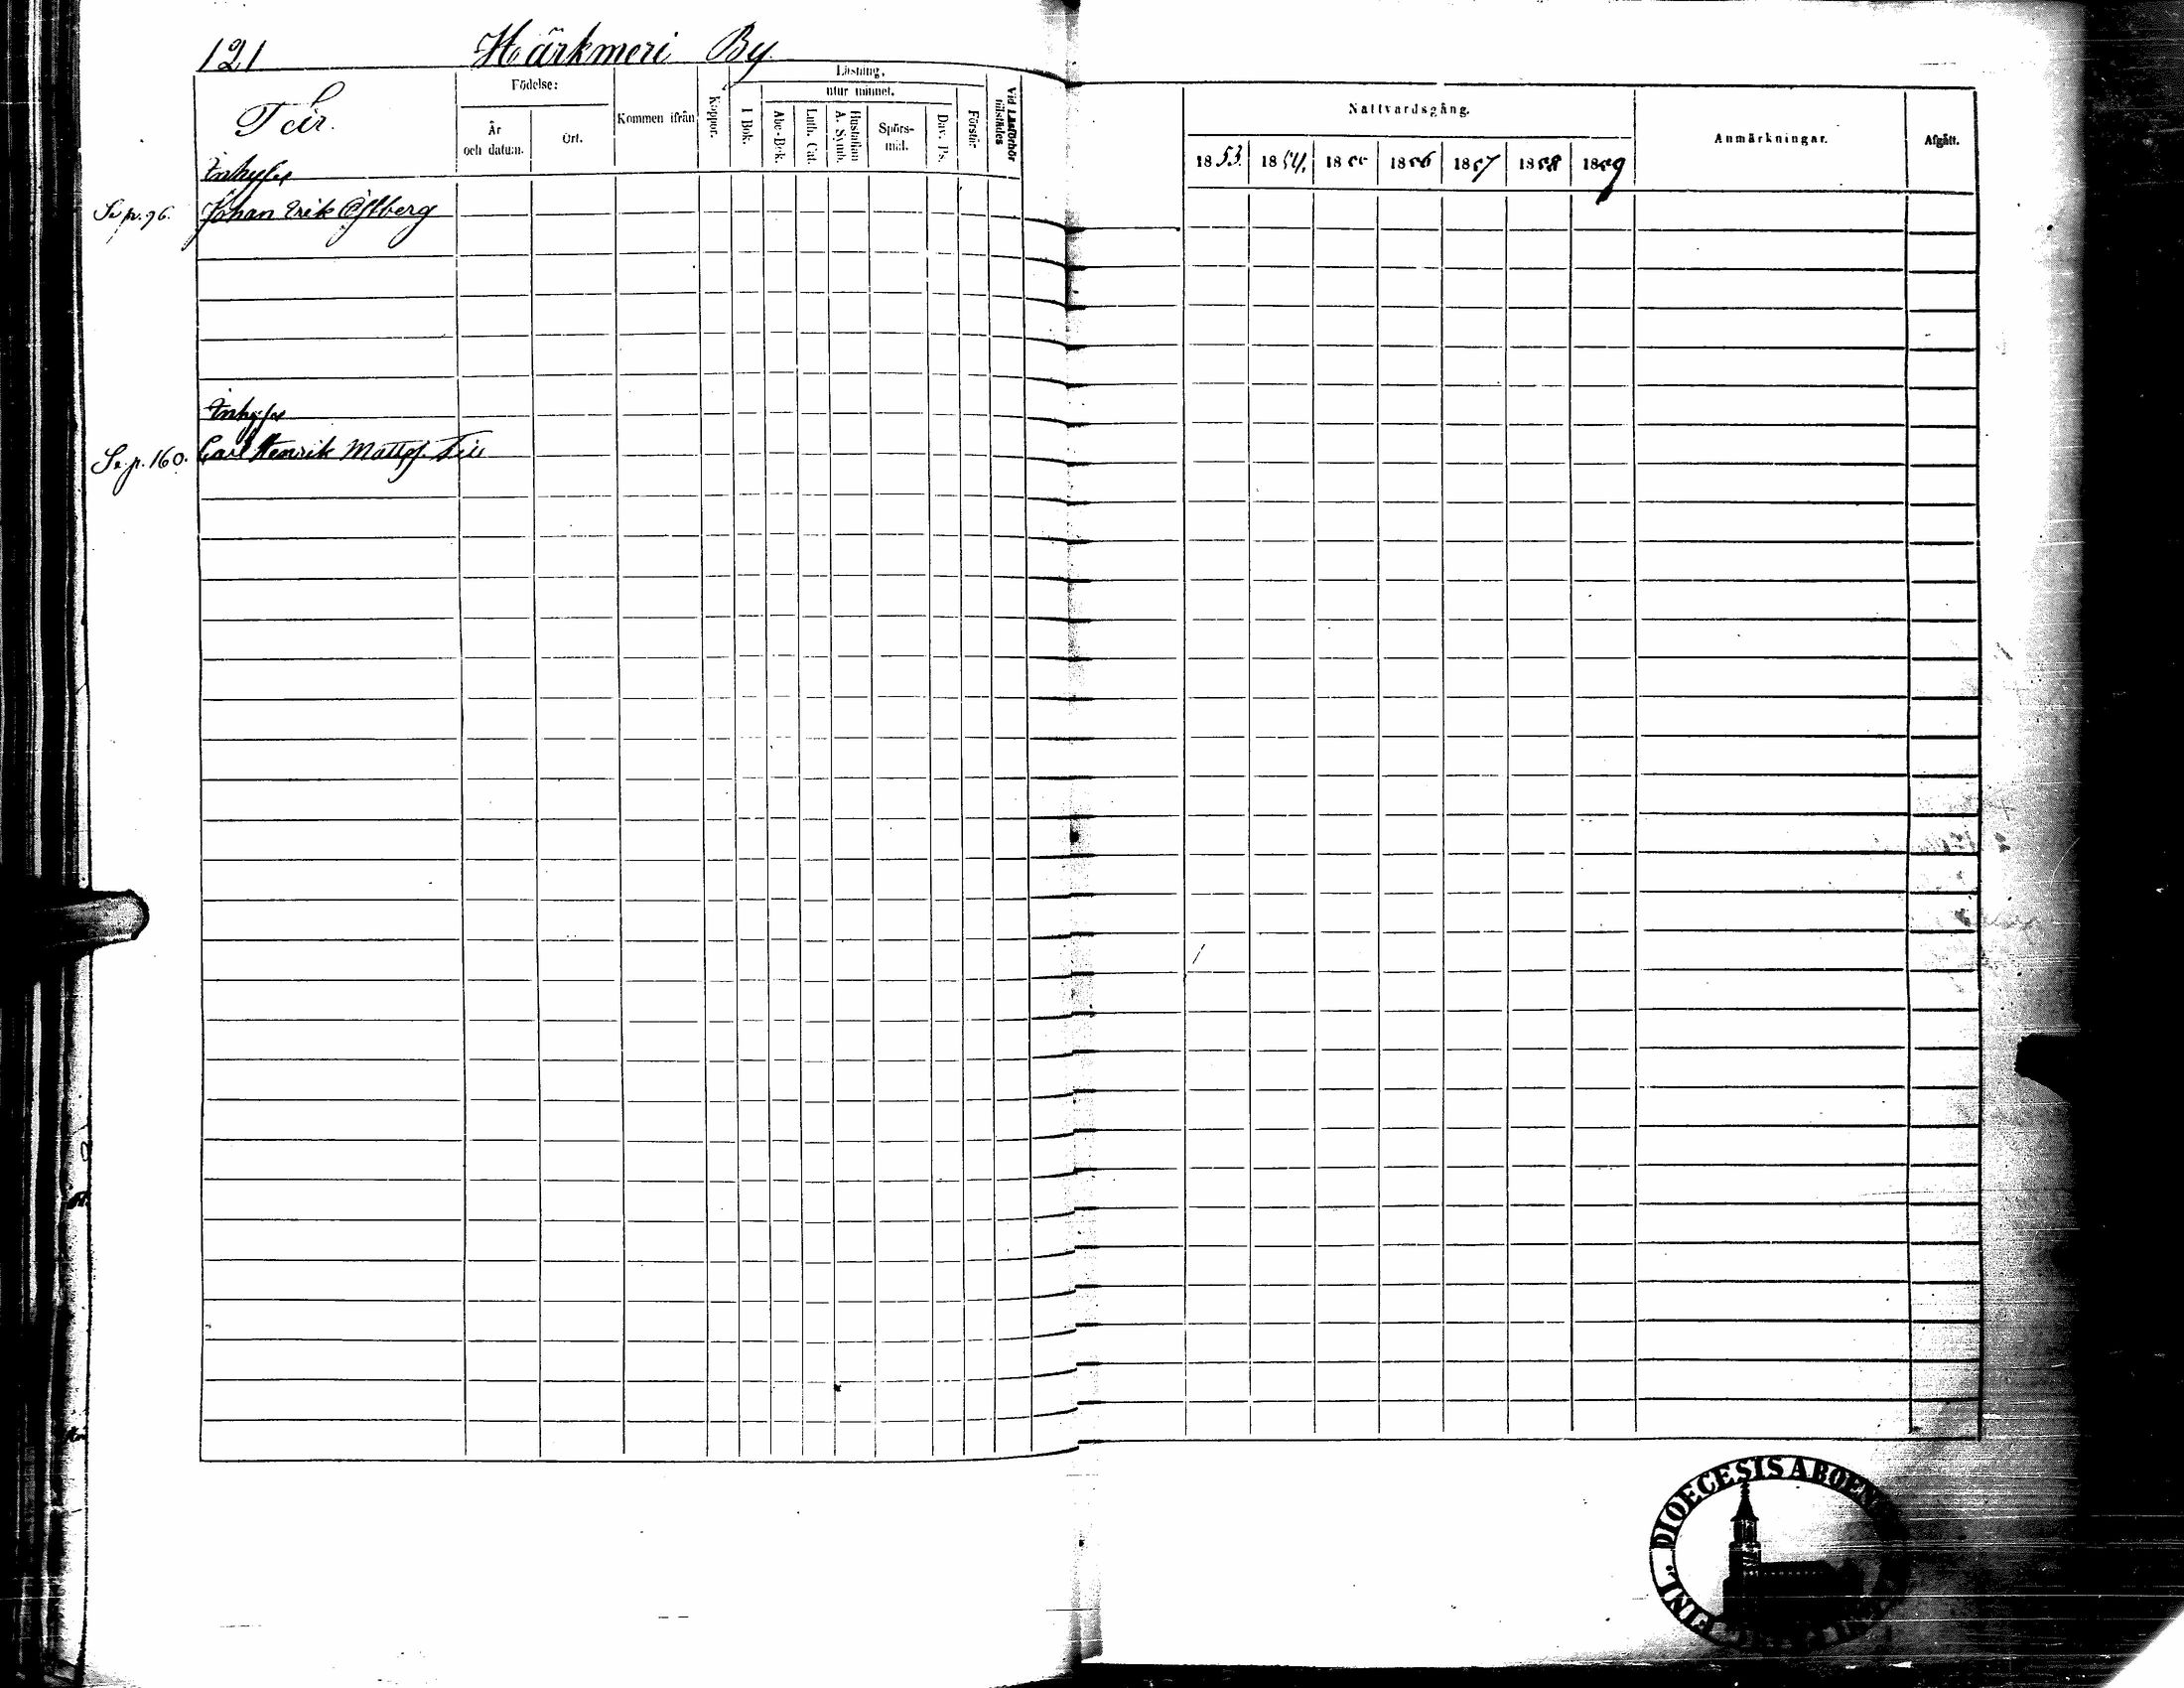 121 Härkmeri By
Teir.
Födelse:
År och datum.
Ort.
Kommen ifrån
Koppor.
Läsning,
I Bok.
utur minnet.
Abc-Bok.
Luth. Cat.
Hustaflan A. Symb.
Spörs-mål.
Dav. Ps.
Förstår
Vid Läsförhör tillstädes
Nattvardsgång.
1853. 1854. 1855 1856 1857 1858 1859
Anmärkningar.
Afgått.
Inhyses
Se p. 96. Johan Erik Östberg
Inhyses
Se p. 160. Carl Henrik Mattss. Teir
FINL. DIOECESIS ABOEN